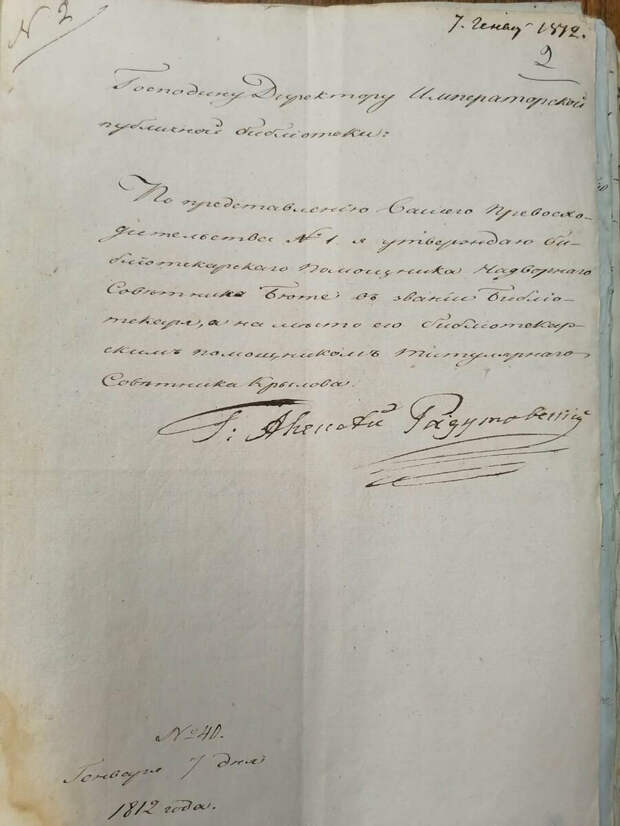 N 2
7. Генв. 1812.
2
Господину Директору Императорской
публичной библиотеки:
По представленію Вашего Превосхо-
дительства № 1. я утверждаю би-
бліотекарскаго помощника Надворнаго
Совѣтника Бюте въ званіи Библіо-
текаря, а на мѣсто его библіотекар-
скимъ помощникомъ Титулярнаго
Совѣтника Крылова.
Г: Алексѣй Разумовскій
№ 40.
Генваря 7 дня
1812 года.